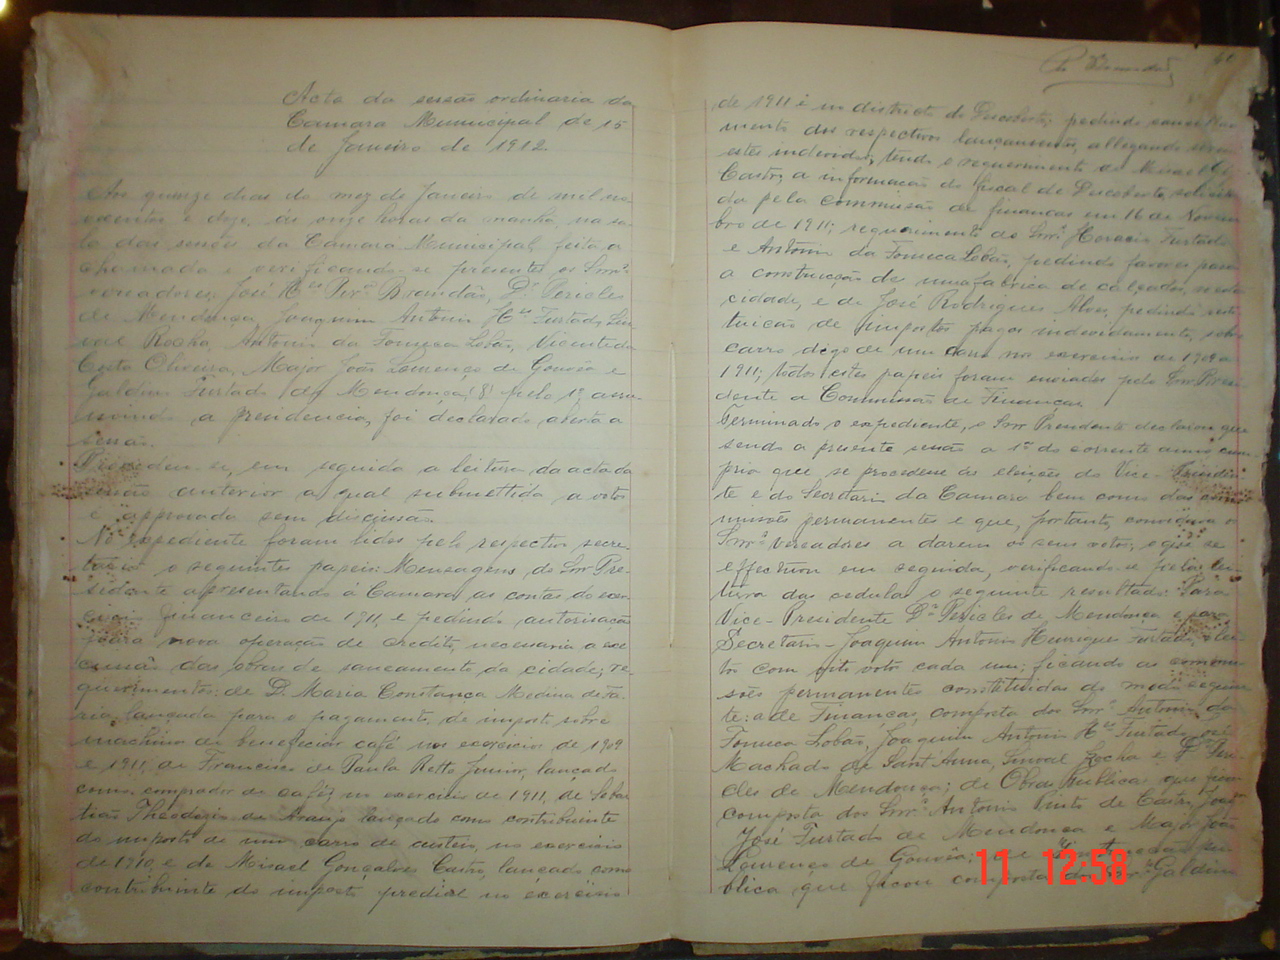 Acta da sessão ordinaria da
Camara Municipal de 15
de Janeiro de 1912
Aos quinze dias do mez de Janeiro de mil no
vecentos e doze, ás onze horas da manhã, na sa-
la das sessões da Camara Municipal, feita a
chamada e verificando-se presentes os Snrs.
vereadores: José Hes Perª Brandão, Dr Pericles
de Mendonça, Joaquim Antonio Hes Furtado, Sin
val Rocha, Antonio da Fonseca Lobão, Vicente da
Costa Oliveira, Major João Lourenço de Gouvêa e
Galdino Furtado de Mendonça, (8) pelo 1º assu-
mindo a presidencia, foi declarada aberta a
sessão.
Procedeu-se, em seguida a leitura da acta da
sessão anterior a qual submettida a votos
é approvada sem discussão.
No expediente foram lidos pelo respectivo secre-
tario o seguintes papeis: Mensagens do Snr Pre-
sidente apresentando á Camara as contas do exer
cicio financeiro de 1911, e pedindo autorisação
para nova operação de credito, necessaria a exe
cução das obras de saneamento da cidade; re-
querimentos: de D. Maria Constança Medina de Fa-
ria, lançada para o pagamento de imposto sobre
machina de beneficiar café nos exercicios de 1909
e 1911, de Francisco de Paula Retto Junior, lançado
como comprador de café, no exercicio de 1911, de Sebas
tião Theodozio de Araujo lançado como contribuinte
do imposto de um carro de custeio, no exercicio
de 1910, e de Misael Gonçalves Castro, lançado como
contribuinte do imposto predial no exercicio
60
de 1911 e in districto do Descoberto; pedindo cancella
mento dos respectivos lançamentos, allegando serem
estes indevidos, tendo o requerimento de Misael G.
Castro, a informação do fiscal de Descoberto, solicita
da pela commissão de finanças em 16 de Novem
bro de 1911; requerimento do Snrs. Horacio Furtado
e Antonio da Fonseca Lobão, pedindo favores para
a construcção de uma fabrica de calçados, nesta
cidade, e de José Rodrigues Alves, pedindo resti
tuição de impostos pagos indevidamente, sobre
carro digo de um carro no exercicio de 1909 a
1911; todos estes papeis foram enviados pelo Snr Presi
dente a Commissão de Finanças.
Terminado o expediente, o Snr Presidente declarou que
sendo a presente sessão a 1ª do corrente anno cum
pria que se procedesse ás eleições do Vice-Presiden
te e do Secretario da Camara bem como das com
missões permanentes e que, portanto, convidava os
Snrs. Vereadores a darem os seus votos, o que se
effectuou em seguida, verificando-se pela lei-
tura das cedulas o seguinte resultado: Para
Vice-Presidente Dr Pericles de Mendonça e para
Secretario-Joaquim Antonio Henrique Furtado elei
tos com sete votos cada um; ficando as commis
sões permanentes constituidas do modo seguin
te: a de Finanças, composta dos Snrs. Antonio da
Fonseca Lobão, Joaquim Antonio Hes Furtado, José
Machado de Sant'Anna, Sinval Rocha e Dr Peri-
cles de Mendonça; de Obras Publica que ficou
composta dos Snrs. Antonio Pinto de Castro, João
José Furtado de Mendonça e Major João
Lourenço de Gouvêa; e Instrucção Pu
blica que ficou composta dos Snrs Galdino
11 12:58